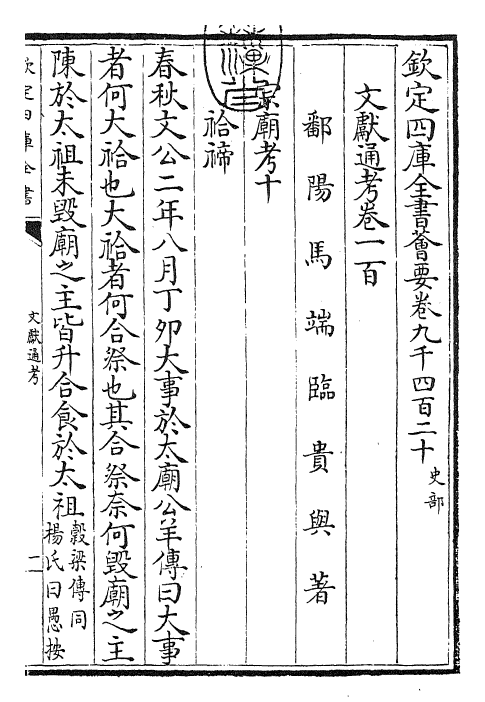 欽定四庫全書薈要卷九千四百二十 史部
文獻通考卷一百
鄱陽馬端臨貴與著
宗廟考十
祫禘
春秋文公二年八月丁卯大事於太廟公羊傳曰大事
者何大祫也大祫者何合祭也其合祭奈何毀廟之主
陳於太祖未毀廟之主皆升合食於太祖
穀梁傳同
楊氏曰愚按
欽定四庫全書
文獻通考
一